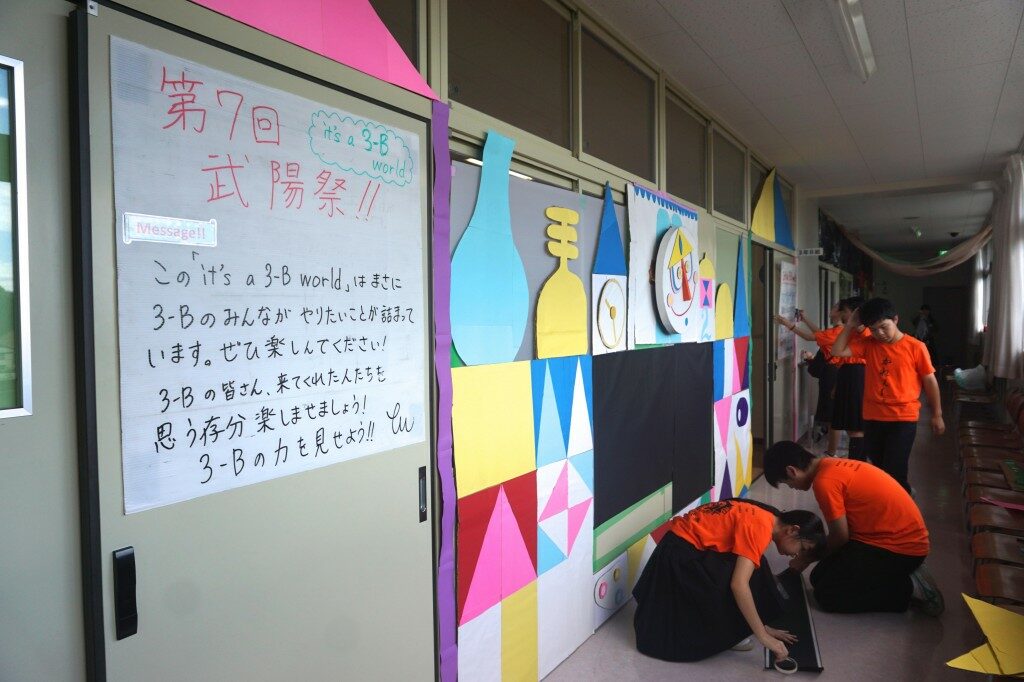 第7回
武陽祭!!
it's a 3-B
world
Message!!
この「it's a 3-B world」はまさに
3-Bのみんなが やりたいことが詰まって
います。ぜひ楽しんでください!
3-Bの皆さん、来てくれた人たちを
思う存分 楽しませましょう!
3-Bの力を見せよう!!